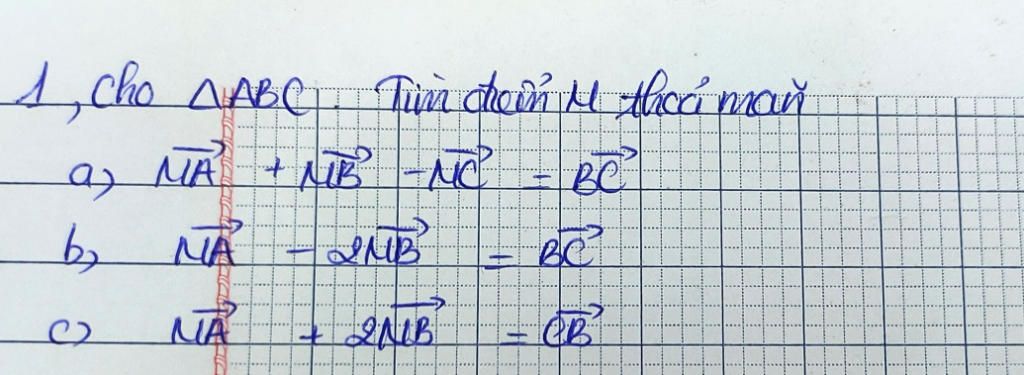 1, Cho △ABC. Tìm điểm M thoả mãn
a) $\overrightarrow{MA} + \overrightarrow{MB} - \overrightarrow{MC} = \overrightarrow{BC}$
b) $\overrightarrow{MA} - 2\overrightarrow{MB} = \overrightarrow{BC}$
c) $\overrightarrow{MA} + 2\overrightarrow{MB} = \overrightarrow{CB}$